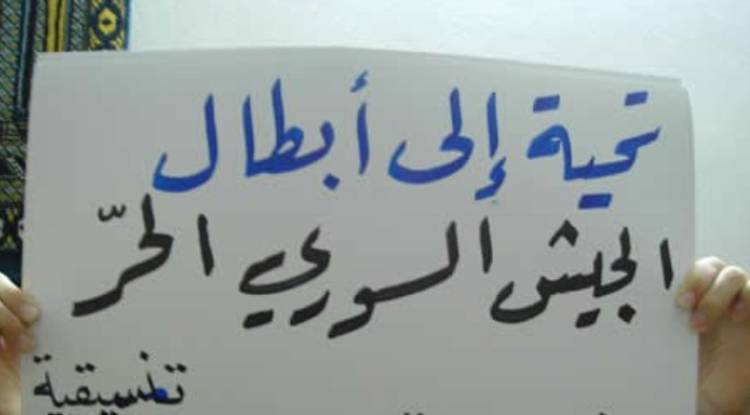 تحية إلى أبطال
الجيش السوري الحرّ
تنسيقية